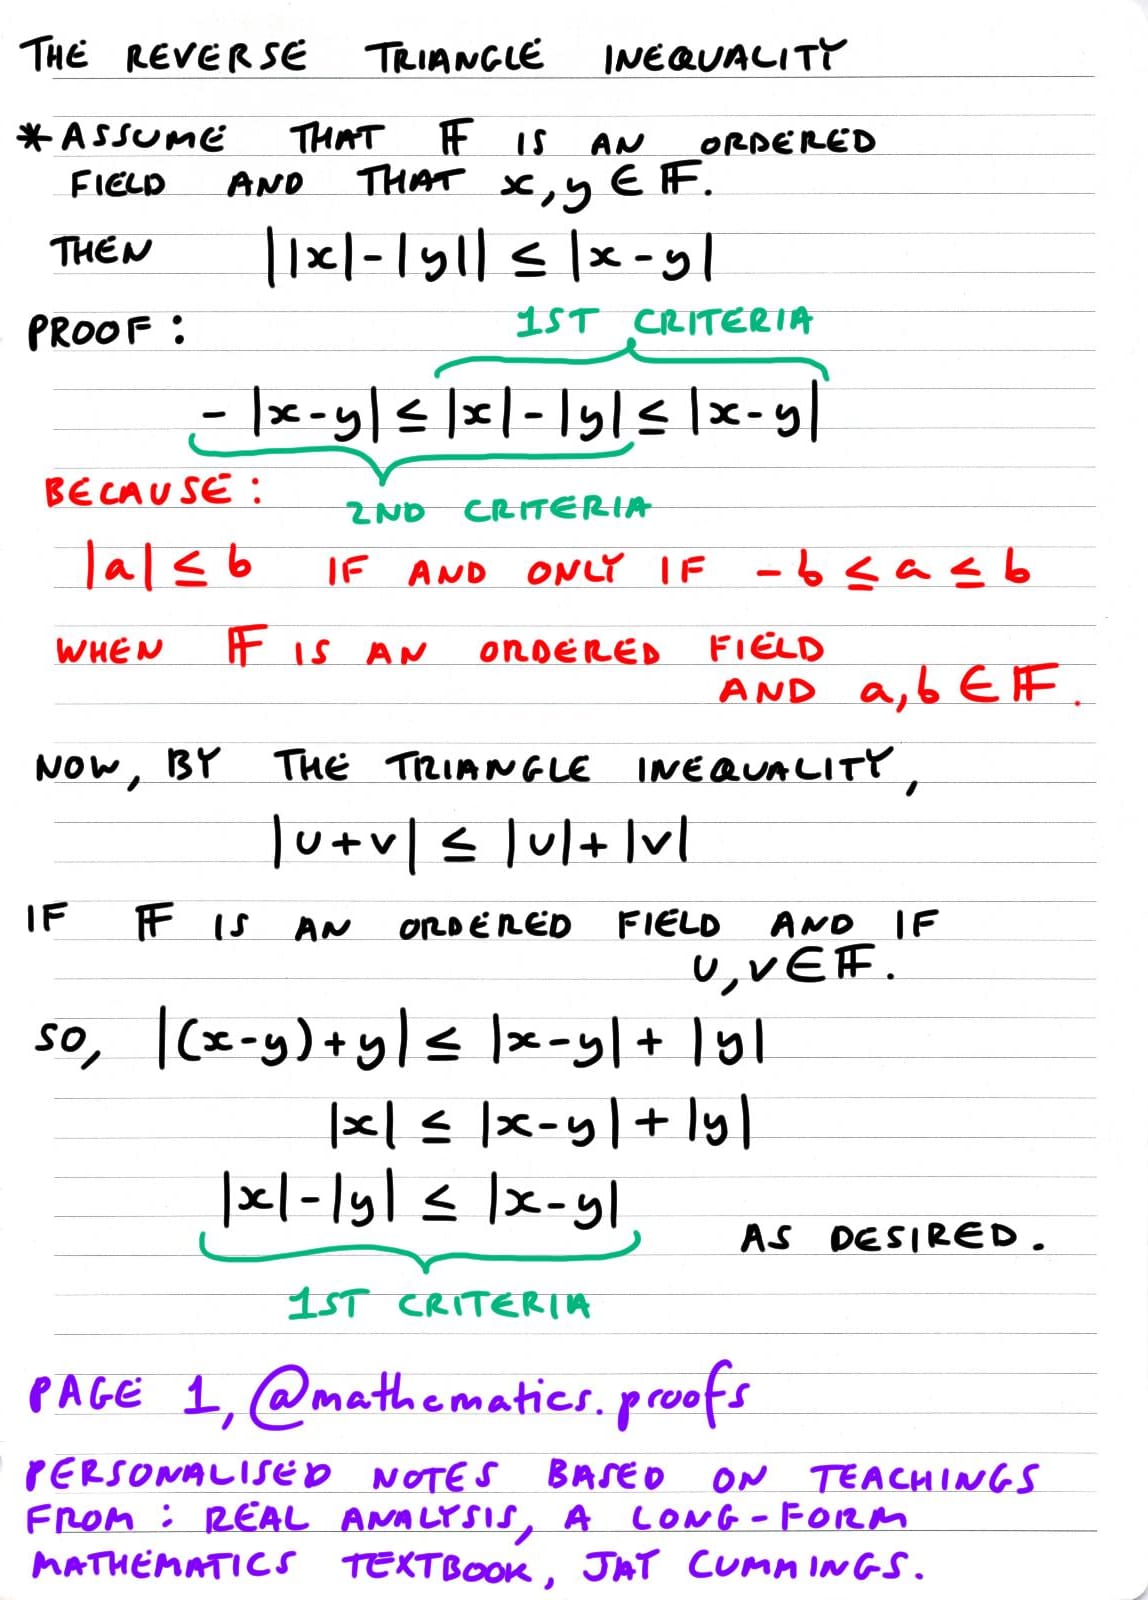 THE REVERSE TRIANGLE INEQUALITY
* ASSUME THAT 𝔽 IS AN ORDERED
FIELD AND THAT x, y ∈ 𝔽.
THEN ||x|-|y|| ≤ |x-y|
PROOF:
1ST CRITERIA
-|x-y| ≤ |x|-|y| ≤ |x-y|
BECAUSE:
2ND CRITERIA
|a| ≤ b IF AND ONLY IF -b ≤ a ≤ b
WHEN 𝔽 IS AN ORDERED FIELD
AND a, b ∈ 𝔽.
NOW, BY THE TRIANGLE INEQUALITY,
|u+v| ≤ |u|+|v|
IF 𝔽 IS AN ORDERED FIELD AND IF
u, v ∈ 𝔽.
SO, |(x-y)+y| ≤ |x-y| + |y|
|x| ≤ |x-y| + |y|
|x|-|y| ≤ |x-y|
AS DESIRED.
1ST CRITERIA
PAGE 1, @mathematics.proofs
PERSONALISED NOTES BASED ON TEACHINGS
FROM: REAL ANALYSIS, A LONG-FORM
MATHEMATICS TEXTBOOK, JAY CUMMINGS.